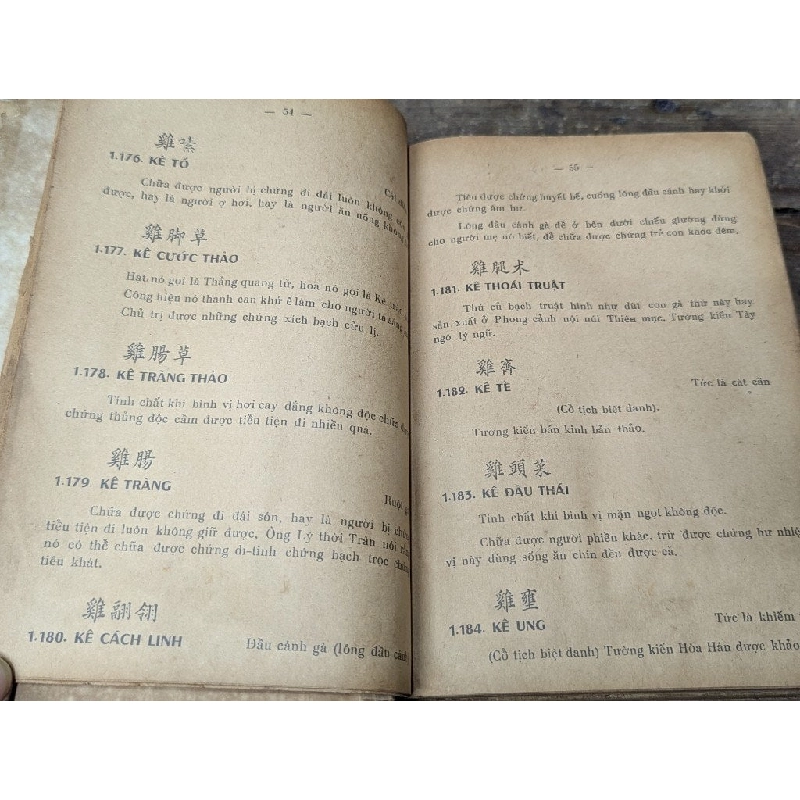 — 54 —
雞嗉
1.176. KÊ TỐ
Chữa được người bị chứng đi đái luôn không
được, hay là người ợ hơi, hay là người ăn nóng không
雞脚草
1.177. KÊ CƯỚC THẢO
Hạt nó gọi là Thắng quang tử, hoa nó gọi là Kê
Công hiện nó thanh can khử ế làm cho người ta
Chủ trị được những chứng xích bạch cửu lị.
雞腸草
1.178. KÊ TRÀNG THẢO
Tính chất khí bình vị hơi cay đắng không độc chữa được
chứng thũng độc cầm được tiểu tiện đi nhiều quá.
雞腸
1.179 KÊ TRÀNG
Ruột
Chữa được chứng đi đái són, hay là người bị chứng
tiểu tiện đi luôn không giữ được, Ông Lý thời Trân nói rằng
nó có thể chữa được chứng di-tinh chứng bạch trọc chứng
tiêu khát.
雞翮翎
1.180. KÊ CÁCH LINH Đầu cánh gà (lông đầu cánh
— 55 —
Tiêu được chứng huyết bế, cuống lông đầu cánh hay khởi
được chứng âm hư.
Lông đầu cánh gà để ở bên dưới chiếu giường đừng
cho người mẹ nó biết, để chữa được chứng trẻ con khóc đêm.
雞腿朮
1.181. KÊ THOÁI TRUẬT
Thứ củ bạch truật hình như đùi con gà thứ này hay
sản xuất ở Phong cảnh nội núi Thiên mục. Tường kiến Tây
ngô lý ngữ.
雞齊
1.182. KÊ TỀ Tức là cát căn
(Cổ tịch biệt danh).
Tường kiến bản kinh bản thảo.
雞頭菜
1.183. KÊ ĐẦU THÁI
Tính chất khí bình vị mặn ngọt không độc.
Chữa được người phiền khác, trừ được chứng hư nhiệt
vị này dùng sống ăn chín đều được cả.
雞壅
1.184. KÊ UNG Tức là khiếm
(Cổ tịch biệt danh) Tường kiến Hòa Hán dược khảo